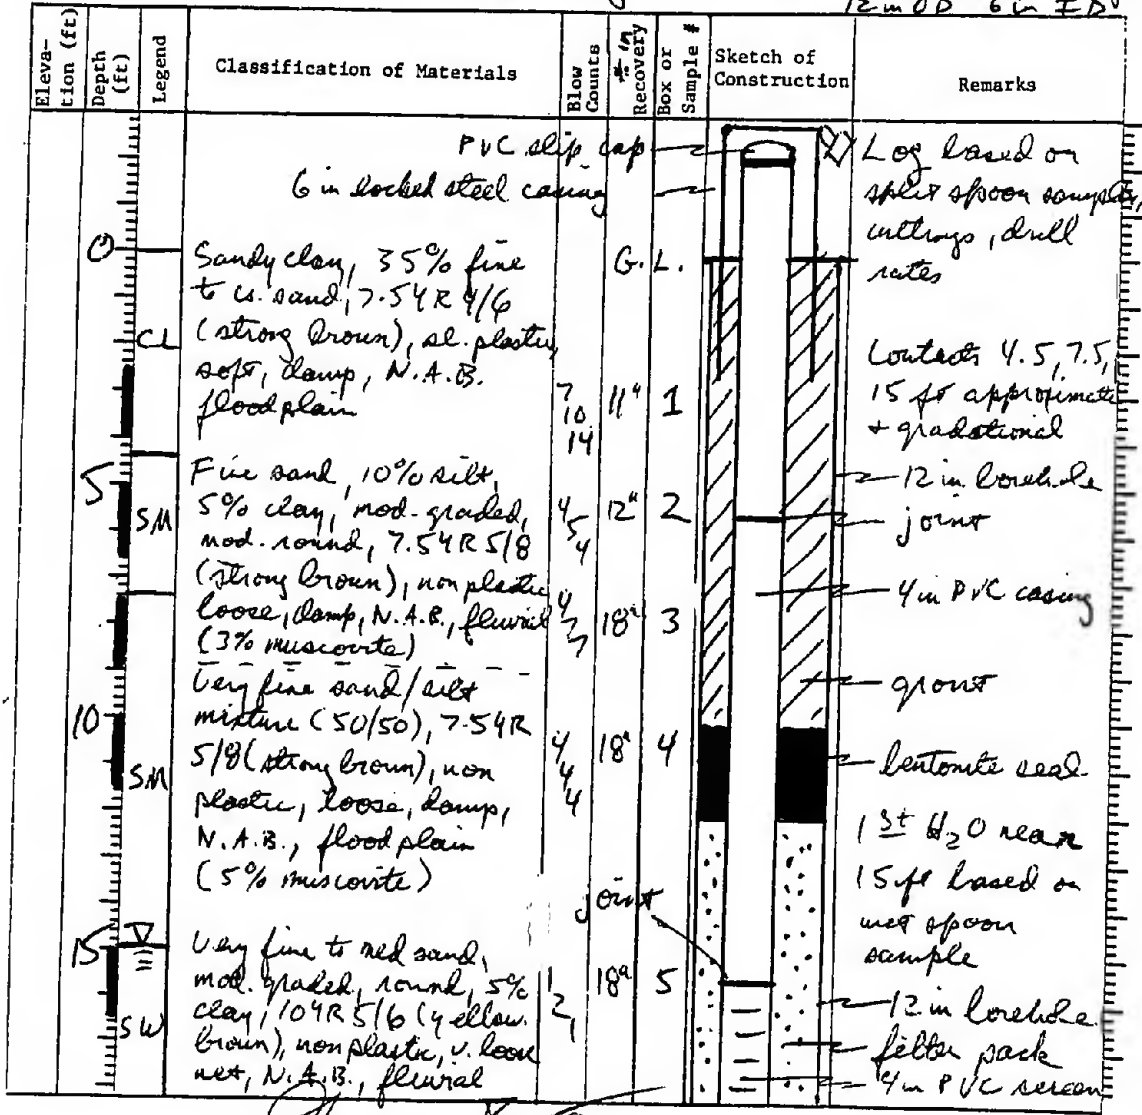 12 in OD 6 in ID
Eleva-
tion (ft)
Depth
(ft)
Legend
Classification of Materials
Blow
Counts
# in
Recovery
Box or
Sample #
Sketch of
Construction
Remarks
PVC slip cap
6 in locked steel casing
Log based on
split spoon samples,
cuttings, drill
rates
0
G.L.
CL
Sandy clay, 35% fine
to cs. sand, 7.5YR 4/6
(strong brown), sl. plastic,
soft, damp, N.A.B.
floodplain
7
10
14
11"
1
Contacts 4.5, 7.5,
15 ft approximate
+ gradational
5
SM
Fine sand, 10% silt,
5% clay, mod. graded,
mod. round, 7.5YR 5/8
(strong brown), non plastic
loose, damp, N.A.B., fluvial
(3% muscovite)
4
5
4
12"
2
12 in borehole
joint
4
7
7
18"
3
4 in PVC casing
grout
10
SM
Very fine sand/silt
mixture (50/50), 7.5YR
5/8 (strong brown), non
plastic, loose, damp,
N.A.B., flood plain
(5% muscovite)
4
4
4
18"
4
bentonite seal
1st H2O near
15 ft based on
wet spoon
sample
joint
15
SW
Very fine to med sand,
mod. graded, round, 5%
clay, 10YR 5/6 (yellow.
brown), non plastic, v. loose
wet, N.A.B., fluvial
1
2
1
18"
5
12 in borehole
filter pack
4 in PVC screen